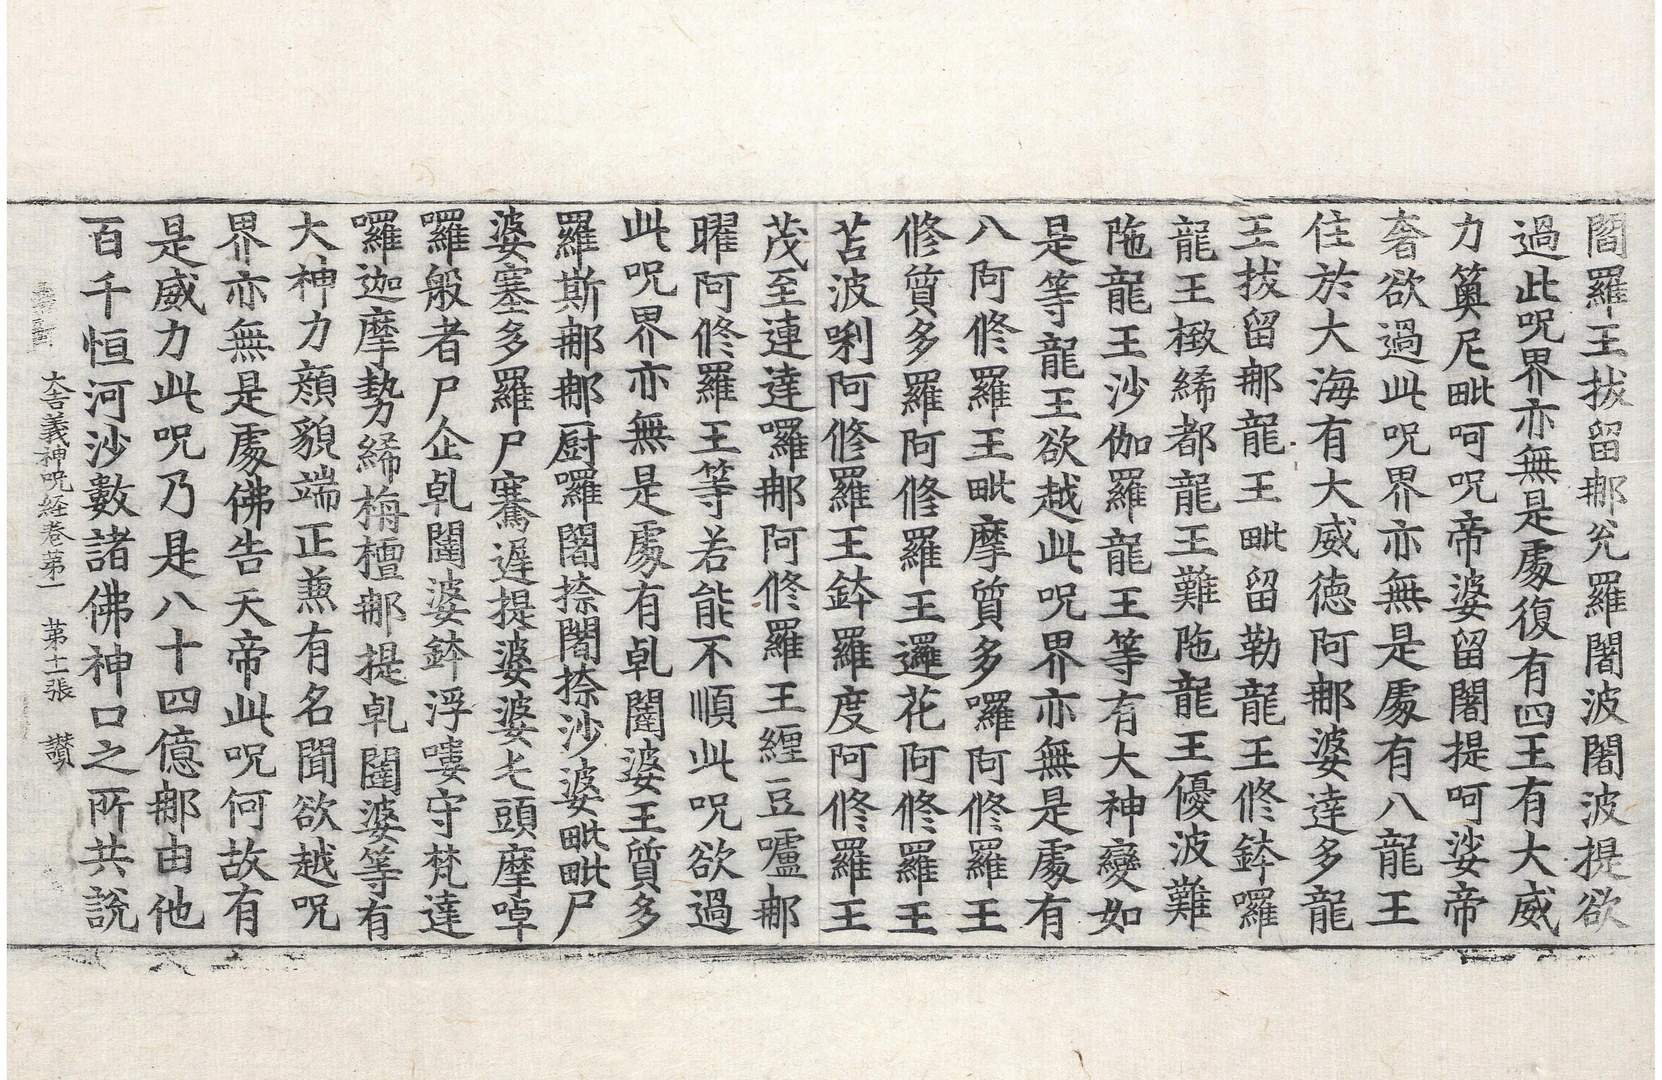 閻羅王拔留那兊羅闍波闍波提欲
過此呪界亦無是處復有四王有大威
力䈣尼毗呵呪帝婆留闍提呵娑帝
奢欲過此呪界亦無是處有八龍王
住於大海有大威德阿那婆達多龍
王拔留那龍王毗留勒龍王修鉢囉
龍王檄絺都龍王難陁龍王優波難
陁龍王沙伽羅龍王等有大神變如
是等龍王欲越此呪界亦無是處有
八阿修羅王毗摩質多囉阿修羅王
修質多羅阿修羅王邏花阿修羅王
苫波唎阿修羅王鉢羅度阿修羅王
茂至連達囉那阿修羅王纒豆嚧那
曜阿修羅王等若能不順此呪欲過
此呪界亦無是處有乹闥婆王質多
羅斯那那厨囉闍捺闍捺沙婆毗毗尸
婆塞多羅尸騫遲提婆婆七頭摩啅
囉般者尸企乹闥婆鉢浮嘍守梵達
囉迦摩勢絺栴檀那提乹闥婆等有
大神力顏貌端正兼有名聞欲越呪
界亦無是處佛告天帝此呪何故有
是威力此呪乃是八十四億那由他
百千恒河沙數諸佛神口之所共說
大吉義神呪経卷第一　第十二張　讃